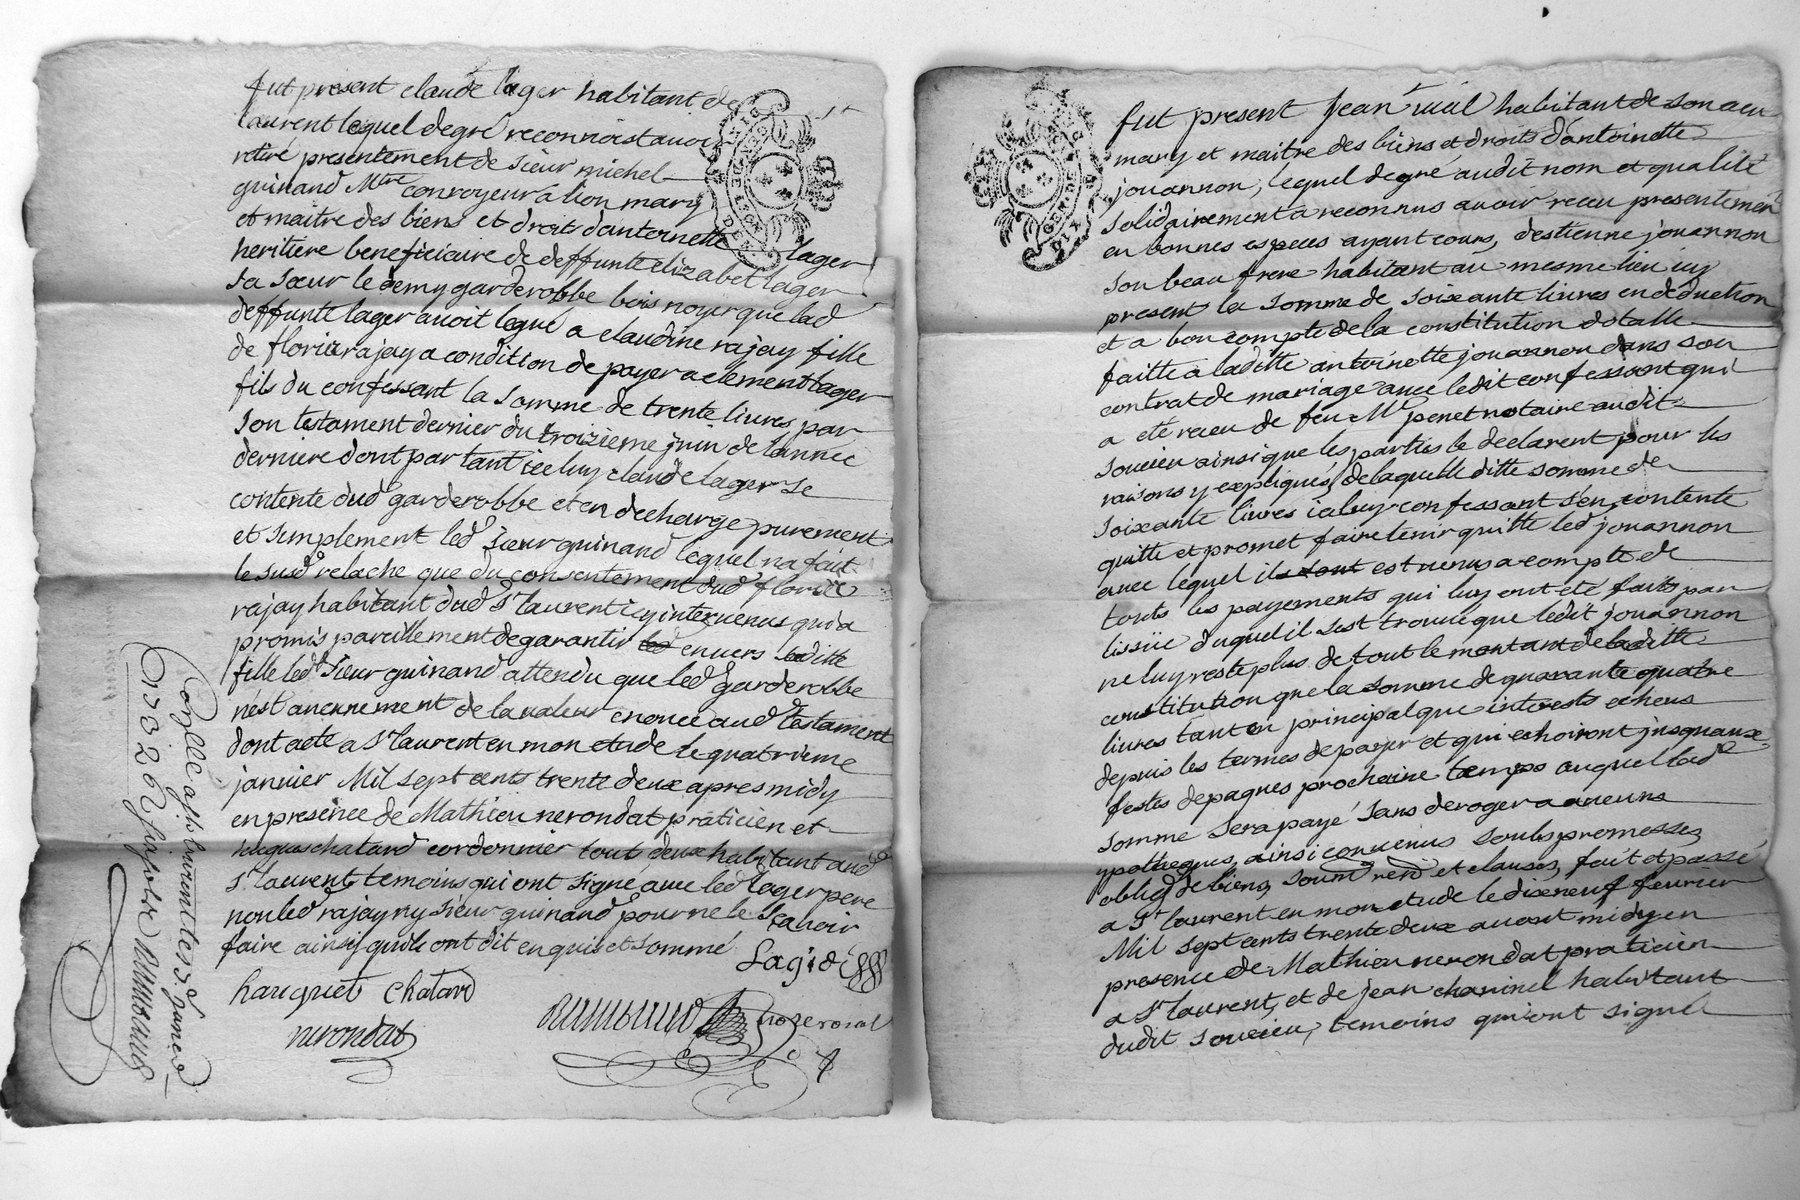 fut present claude lager habitant de
laurent lequel de gré reconnoist avoir
retiré presentement de sieur michel
guinand Mtre conroyeur a lion mary
et maitre des biens et droits danternette lager
heritiere beneficiaire de deffunte elizabet lager
sa sœur le demy garderobbe bois noyer que lad
deffunte lager avoit legué a claudine rajay fille
de florir rajay a condition de payer a clement lager
fils du confessant la somme de trente livres par
son testament dernier du troizieme juin de lannée
derniere dont partant iceluy claude lager se
contente dud garderobbe et en decharge purement
et simplement led sieur guinand lequel na fait
le susd relache que du consentement dud florir
rajay habitant dud St laurent icy intervenus qui a
promis pareillement de garantir led envers laditte
fille led sieur guinand attendu que led garderobbe
nest aucunement de la valeur enoncé aud testament
dont acte a St laurent en mon etude le quatrieme
janvier Mil sept cents trente deux apres midy
en presence de Mathieu nerondat praticien et
hugues chatard cordonnier tout deux habitant aud
St laurent temoins qui ont signé avec led lager pere
non led rajay ny sieur guinand pour ne le scavoir
faire ainsy quils ont dit enquis et sommé
hauguet Chatard
nerondat
no.re roial
GEN DE LION
fut present Jean viel habitant de
mary et maitre des biens et droits dantoinette
jouannon, lequel de gré audit nom et qualité
solidairement a reconnus avoir receu presentement
en bonnes especes ayant cours, destienne jouannon
son beau frere habitant au mesme lieu icy
present la somme de soixante livres en deduction
et a bon compte de la constitution dotalle
faitte a laditte antoinette jouannon dans son
contrat de mariage avec ledit confessant qui
a eté receu de feu Me penet notaire audit
soucieu ainsi que les parties le declarent pour les
raisons y expliqués, de laquelle ditte somme de
soixante livres iceluy confessant sen contente
quitte et promet faire tenir quitte led jouannon
avec lequel ils sont est venus a compte de
touts les payements qui luy ont eté faits par
lissüe duquel il sest trouvé que ledit jouannon
ne luy reste plus de tout le montant de laditte
constitution que la somme de quarante quatre
livres tant en principal que interests echeus
depuis les termes de payer et qui echoiront jusquaux
festes de paques prochaine temps auquel lad
somme sera payé sans deroger a aucuns
ypotheques ainsi convenus soubs promesses
obligd de biens, soumd rend et clauses, fait et passé
a St laurent en mon etude le dix neuf fevrier
Mil sept cents trente deux avant midy en
presence de Mathieu nerondat praticien
a St laurent, et de jean habitant
dudit soucieu, temoins qui ont signé
GEN DE LION